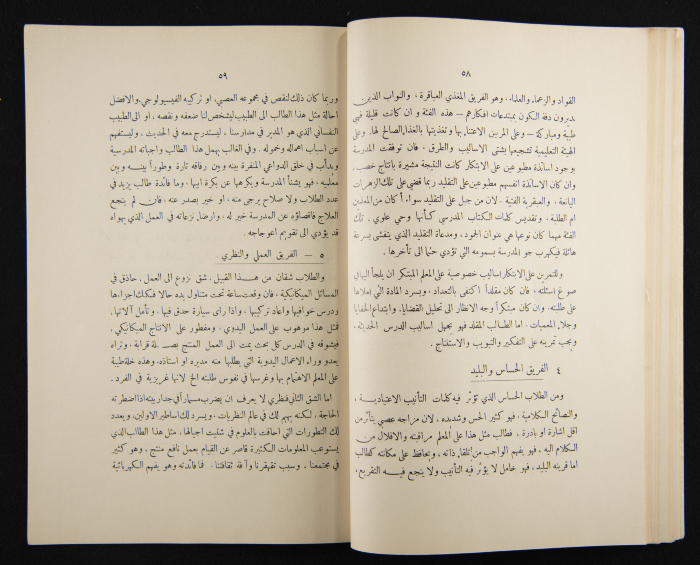 ٥٨
القواد والزعماء والعلماء، وهو الفريق المغذي العباقرة، والنواب الذين
يديرون دفة الكون بمبتدعات افكارهم — هذه الفئة وان كانت قليلة فهي
طيبة ومباركة — وعلى المربين الاعتناء بها وتغذيتها بالغذاء الصالح لها. وعلى
الهيئة التعليمية تشجيعها بشتى الاساليب والطرق، فان توفقت المدرسة
بوجود اساتذة مطبوعين على الابتكار كانت النتيجة مشيرة بانتاج خصب.
وان كان الاساتذة انفسهم مطبوعين على التقليد ربما قضى على تلك الزهرات
اليانعة، والعبقرية الفتية. لان من جبل على التقليد سواء أكان من المعلمين
ام الطلبة. وتقديس كلمات الكتاب المدرسي كأنها وحي علوي. تلك
الفئة مهما كان نوعها هي عنوان الجمود، ومدعاة التقليد الذي يتفشى بسرعة
هائلة فيكهرب جو المدرسة بسمومه التي تؤدي حتما الى تأخرها.
وللتمرين على الابتكار اساليب خصوصية على المعلم المبتكر ان يلجأ اليها في
صوغ اسئلته، فان كان مقلداً اكتفى بالتعداد، وبسرد المادة التي املاها
على طلبته. وان كان مبتكراً وجه الانظار الى تحليل القضايا. وابتداع الخفايا
وجلاء المعميات. اما الطالب المقلد فهو يجهل اساليب الدرس الحديثة.
ويجب تمرينه على التفكير والتبويب والاستنتاج.
٤ الفريق الحساس والبليد
ومن الطلاب الحساس الذي تؤثر فيه كلمات التأنيب الاعتيادية،
والنصائح الكلامية، فهو كثير الحس وشديده، لان مزاجه عصبي يتأثر من
اقل اشارة او بادرة. فطالب مثل هذا على المعلم مراقبته والاقلال من
الكلام اليه. فهو يفهم الواجب من تلقاء ذاته. ويحافظ على مكانته كطالب
اما قرينه البليد. فهو خامل لا يؤثر فيه التأنيب ولا ينجع فيه التقريع،
٥٩
وربما كان ذلك لنقص في مجموعه العصبي. او تركيبه الفيسيولوجي. والافضل
احالة مثل هذا الطالب الى الطبيب ليشخص لنا ضعفه ونقصه. او الى الطبيب
النفساني الذي هو المدير في مدارسنا، ليستدرج معه في الحديث. ويستفهم
عن اسباب اهماله وخموله. وفي الغالب يهمل هذا الطالب واجباته المدرسية
ويدأب في خلق الدواعي المنفرة بينه وبين رفاقه تارة وطوراً بينه وبين
معلميه. فهو يشنأ المدرسة ويكرهها عن بكرة ابيها، وما فائدة طالب يزيد في
عدد الطلاب ولا صلاح يرجى منه، او خير يصدر عنه، فان لم ينجع
العلاج فاقصاؤه عن المدرسة خير له. وارضاء نزعاته في العمل الذي يهواه
قد يؤدي الى تقويم اعوجاجه.
٥ — الفريق العملي والنظري.
والطلاب شقان من هذا القبيل. شق نزوع الى العمل. حاذق في
المسائل الميكانيكية، فان وقعت ساعة تحت متناول يده حالا فكك اجزاءها
ودرس خوافيها واعاد تركيبها. واذا رأى سيارة حدق فيها، وتأمل آلاتها.
فمثل هذا موهوب على العمل اليدوي. ومفطور على الانتاج الميكانيكي.
فيشوقه في الدرس كل بحث يمت الى العمل المنتج بصلة قرابة، وتراه
يعدو وراء الاعمال اليدوية التي يطلبها منه مديره او استاذه. وهذه خلة طيبة
على المعلم الاهتمام بها وغرسها في نفوس طلبته لانها غريزية في الفرد.
اما الشق الثاني فنظري لا يعرف ان يضرب مسماراً في جدار بيته اذا اضطرته
الحاجة، لكنه يهيم لك في عالم النظريات، ويسرد لك اساطير الاولين، ويعدد
لك التطورات التي احاقت بالعلوم في شتيت اجيالها، مثل هذا الطالب الذي
يستوعب المعلومات الكثيرة قاصر عن القيام بعمل نافع منتج، وهو كثير
في مجتمعنا، وسبب تقهقرنا وآفة ثقافتنا. فما فائدته وهو يفهم الكهربائية